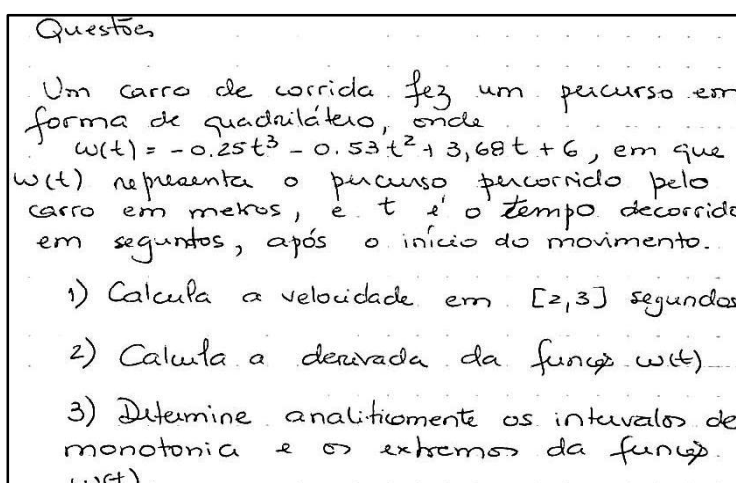 Questões
Um carro de corrida fez um percurso em
forma de quadrilátero, onde
w(t) = -0.25t³ - 0.53t² + 3,68t + 6, em que
w(t) representa o percurso percorrido pelo
carro em metros, e t é o tempo decorrido
em seguntos, após o início do movimento.
1) Calcula a velocidade em [2,3] segundos
2) Calcula a derivada da função w(t)
3) Determine analiticamente os intervalos de
monotonia e os extremos da função
w(t)